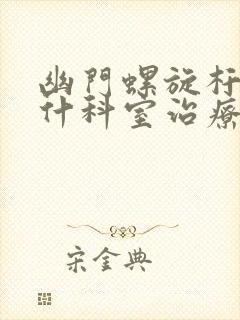 幽門螺旋杆
什科室治療
宋金典